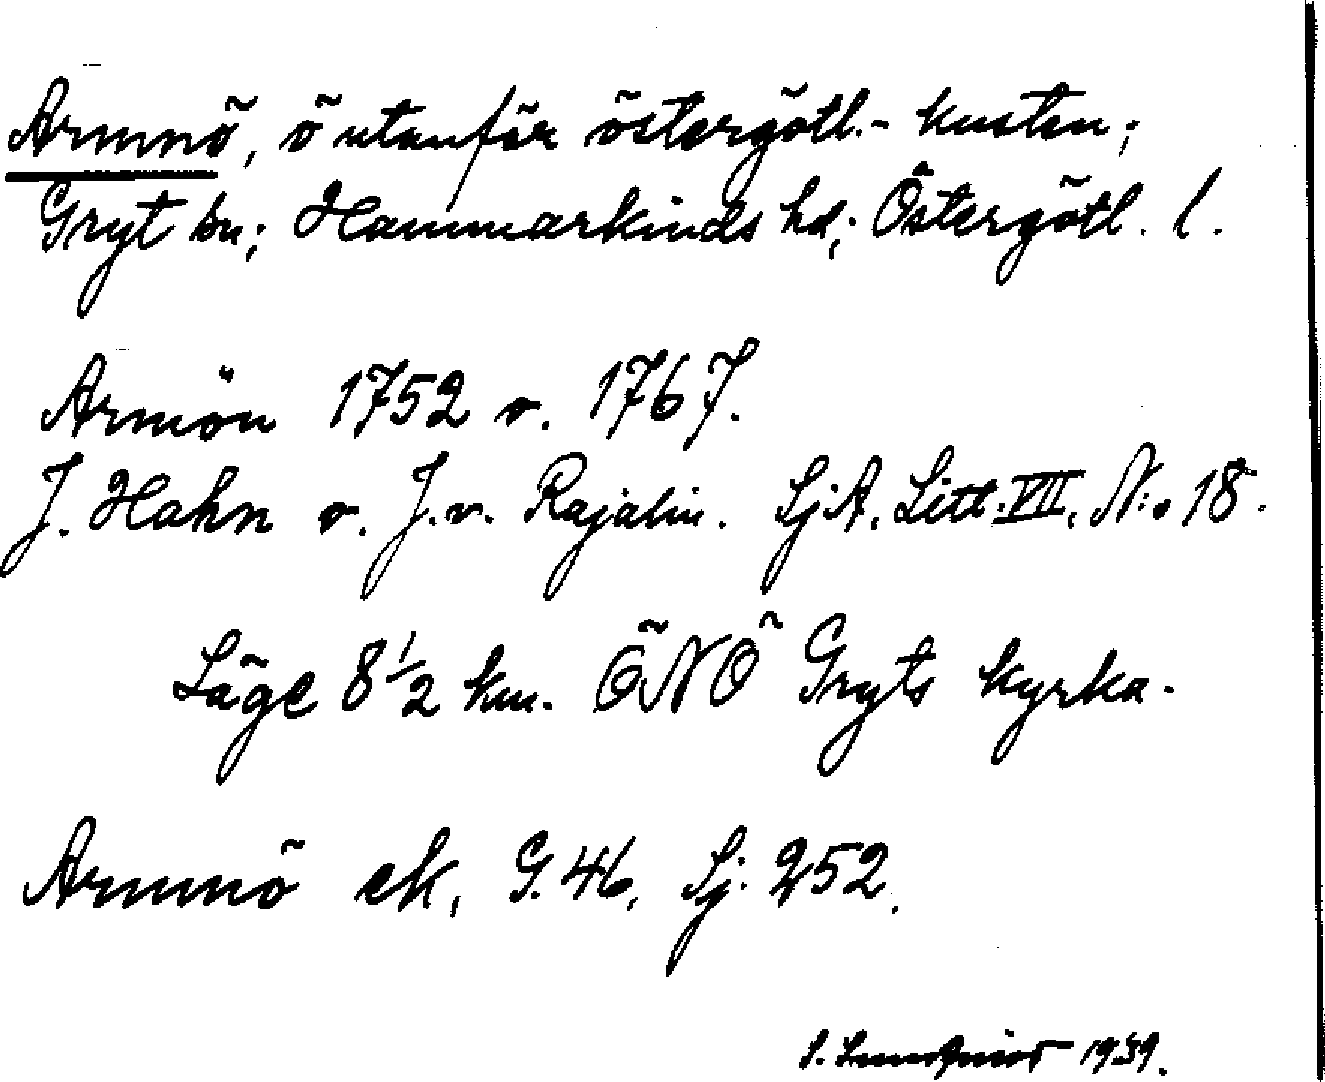 Armnö, ö utanför östergötl.- kusten;
Gryt sn; Hammarkinds hd; Östergötl. l.
Armön 1752 o. 1767.
J. Hahn o. J. v. Rajalin. SjA. Litt. VII. N:o 18.
Läge 8 1/2 km. ÖNÖ Gryts kyrka.
Armnö ek, G. 46, Sj. 252.
S. Lundqvist 1939.